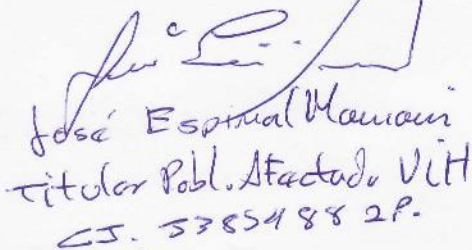 José Espinal Mamani
Titular Pobl. Afectada VIH
CI. 5385488 LP.